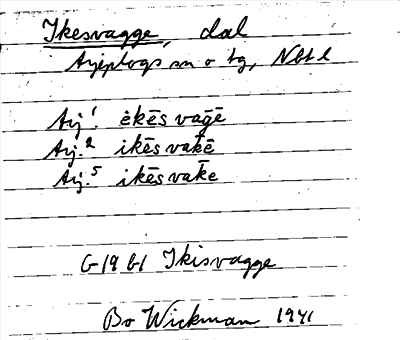 Ikesvagge, dal
Arjeplogs sn o tg, Nbtl
Arj.¹ ėkēs vaḡē
Arj.² ikēs vak̄ē
Arj.⁵ ikēs vak̄e
G 19 61 Ikisvagge
Bo Wickman 1941